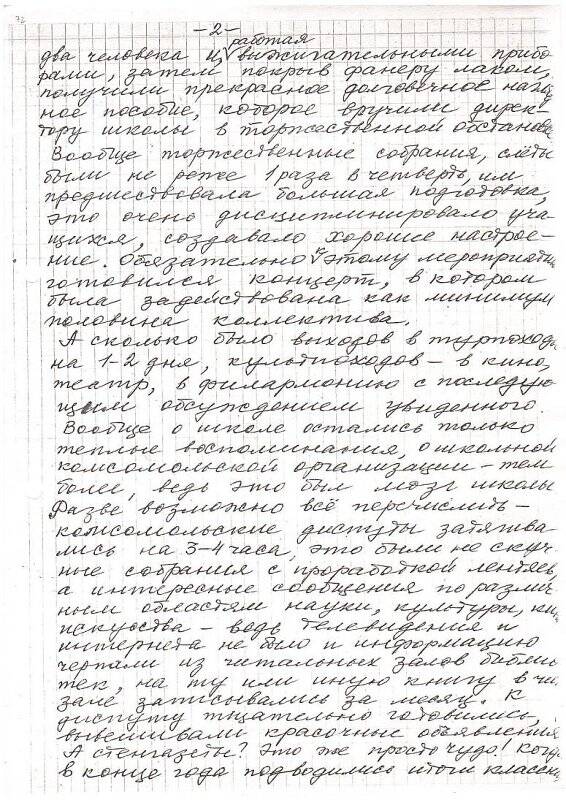 72
-2-
работая
два человека и, выжигательными прибо-
рами, затем покрыв фанеру лаком,
получили прекрасное долговечное нагляд
ное пособие, которое вручили дирек-
тору школы в торжественной обстанов
Вообще торжественные собрания, слёты
были не реже 1 раза в четверть, им
предшествовала большая подготовка,
это очень дисциплинировало уча-
щихся, создавало хорошее настрое-
ние. Обязательно к этому мероприяти
готовился концерт, в котором
была задействована как минимум
половина коллектива.
А сколько было выходов в турпоходы
на 1-2 дня, культпоходов – в кино,
театр, в филармонию с последую
щим обсуждением увиденного.
Вообще о школе остались только
теплые воспоминания, о школьной
комсомольской организации – тем
более, ведь это был мозг школы
Разве возможно всё перечислить –
комсомольские диспуты затягива
лись на 3-4 часа, это были не скуч-
ные собрания с проработкой лентяев,
а интересные сообщения по различ-
ным областям науки, культуры,
искусства – ведь телевидения и
интернета не было и информацию
черпали из читальных залов библио
тек, на ту или иную книгу в чи.
зале записывались за месяц. К
диспуту тщательно готовились,
вывешивали красочные объявления
А стенгазеты? Это же просто чудо! Когда
в конце года подводились итоги классн